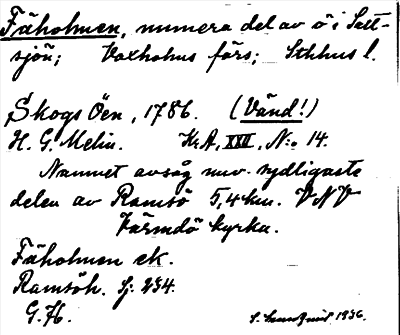 Fäholmen, numera del av ö i Salt-
sjön; Vaxholms förs; Sthlms l.
Skogs Öen, 1786. (Vänd!)
H. G. Melin. Kr A, XXII, No 14.
Namnet avsåg nuv. sydligaste
delen av Ramsö 5,4 km. VNV
Värmdö kyrka.
Fäholmen ek.
Ramsöh. Sj: 234.
G. H.
S. 1936.